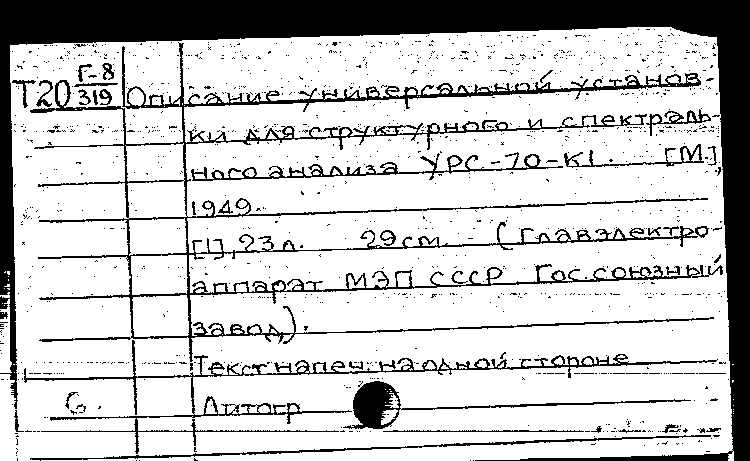 Т20 Г-8/319 Описание универсальной установ-
ки для структурного и спектраль-
ного анализа УРС-70-К1. [М.],
1949.
[1], 23 л. 29 см. (Главэлектро-
аппарат МЭП СССР. Гос. союзный
завод).
Текст напеч. на одной стороне
Литогр